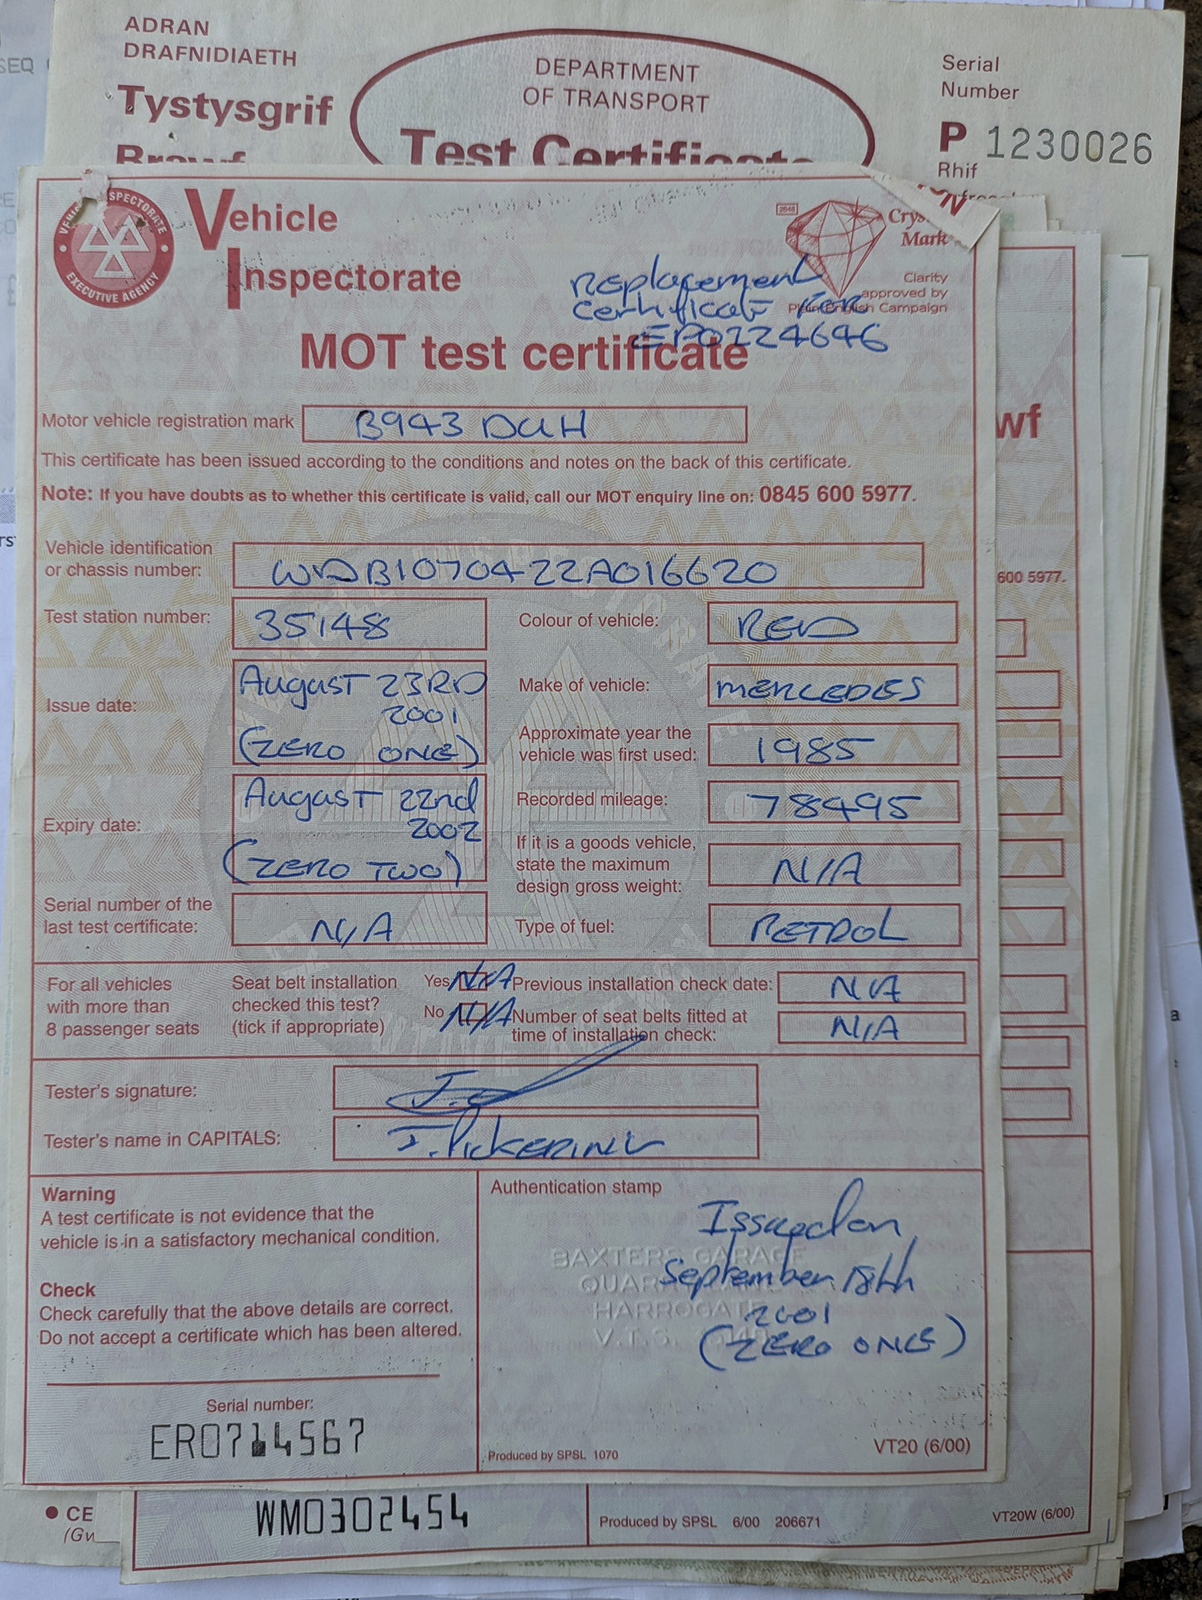 ADRAN
DRAFNIDIAETH
Tystysgrif
DEPARTMENT
OF TRANSPORT
Test Certificate
Serial
Number
P 1230026
Rhif
VEHICLE INSPECTORATE
EXECUTIVE AGENCY
Vehicle
Inspectorate
Crystal
Mark
Clarity
approved by
Plain English Campaign
Replacement
Certificate For
EP0224646
MOT test certificate
Motor vehicle registration mark B943 DUH
This certificate has been issued according to the conditions and notes on the back of this certificate.
Note: If you have doubts as to whether this certificate is valid, call our MOT enquiry line on: 0845 600 5977.
Vehicle identification
or chassis number: WDB1070422A016620
Test station number: 35148
Colour of vehicle: RED
Issue date: August 23RD
2001
(ZERO ONE)
Make of vehicle: MERCEDES
Approximate year the
vehicle was first used: 1985
Expiry date: August 22nd
2002
(ZERO TWO)
Recorded mileage: 78495
If it is a goods vehicle,
state the maximum
design gross weight: N/A
Serial number of the
last test certificate: N/A
Type of fuel: PETROL
For all vehicles
with more than
8 passenger seats
Seat belt installation
checked this test?
(tick if appropriate)
Yes N/A
No N/A
Previous installation check date: N/A
Number of seat belts fitted at
time of installation check: N/A
Tester's signature:
Tester's name in CAPITALS: I. PICKERING
Warning
A test certificate is not evidence that the
vehicle is in a satisfactory mechanical condition.
Check
Check carefully that the above details are correct.
Do not accept a certificate which has been altered.
Serial number:
ER0714567
Authentication stamp
BAXTERS GARAGE
HARROGATE
V.T.S.
Issued on
September 18th
2001
(ZERO ONE)
Produced by SPSL 1070
VT20 (6/00)
wf
600 5977.
CE
WM0302454
Produced by SPSL 6/00 206671
VT20W (6/00)